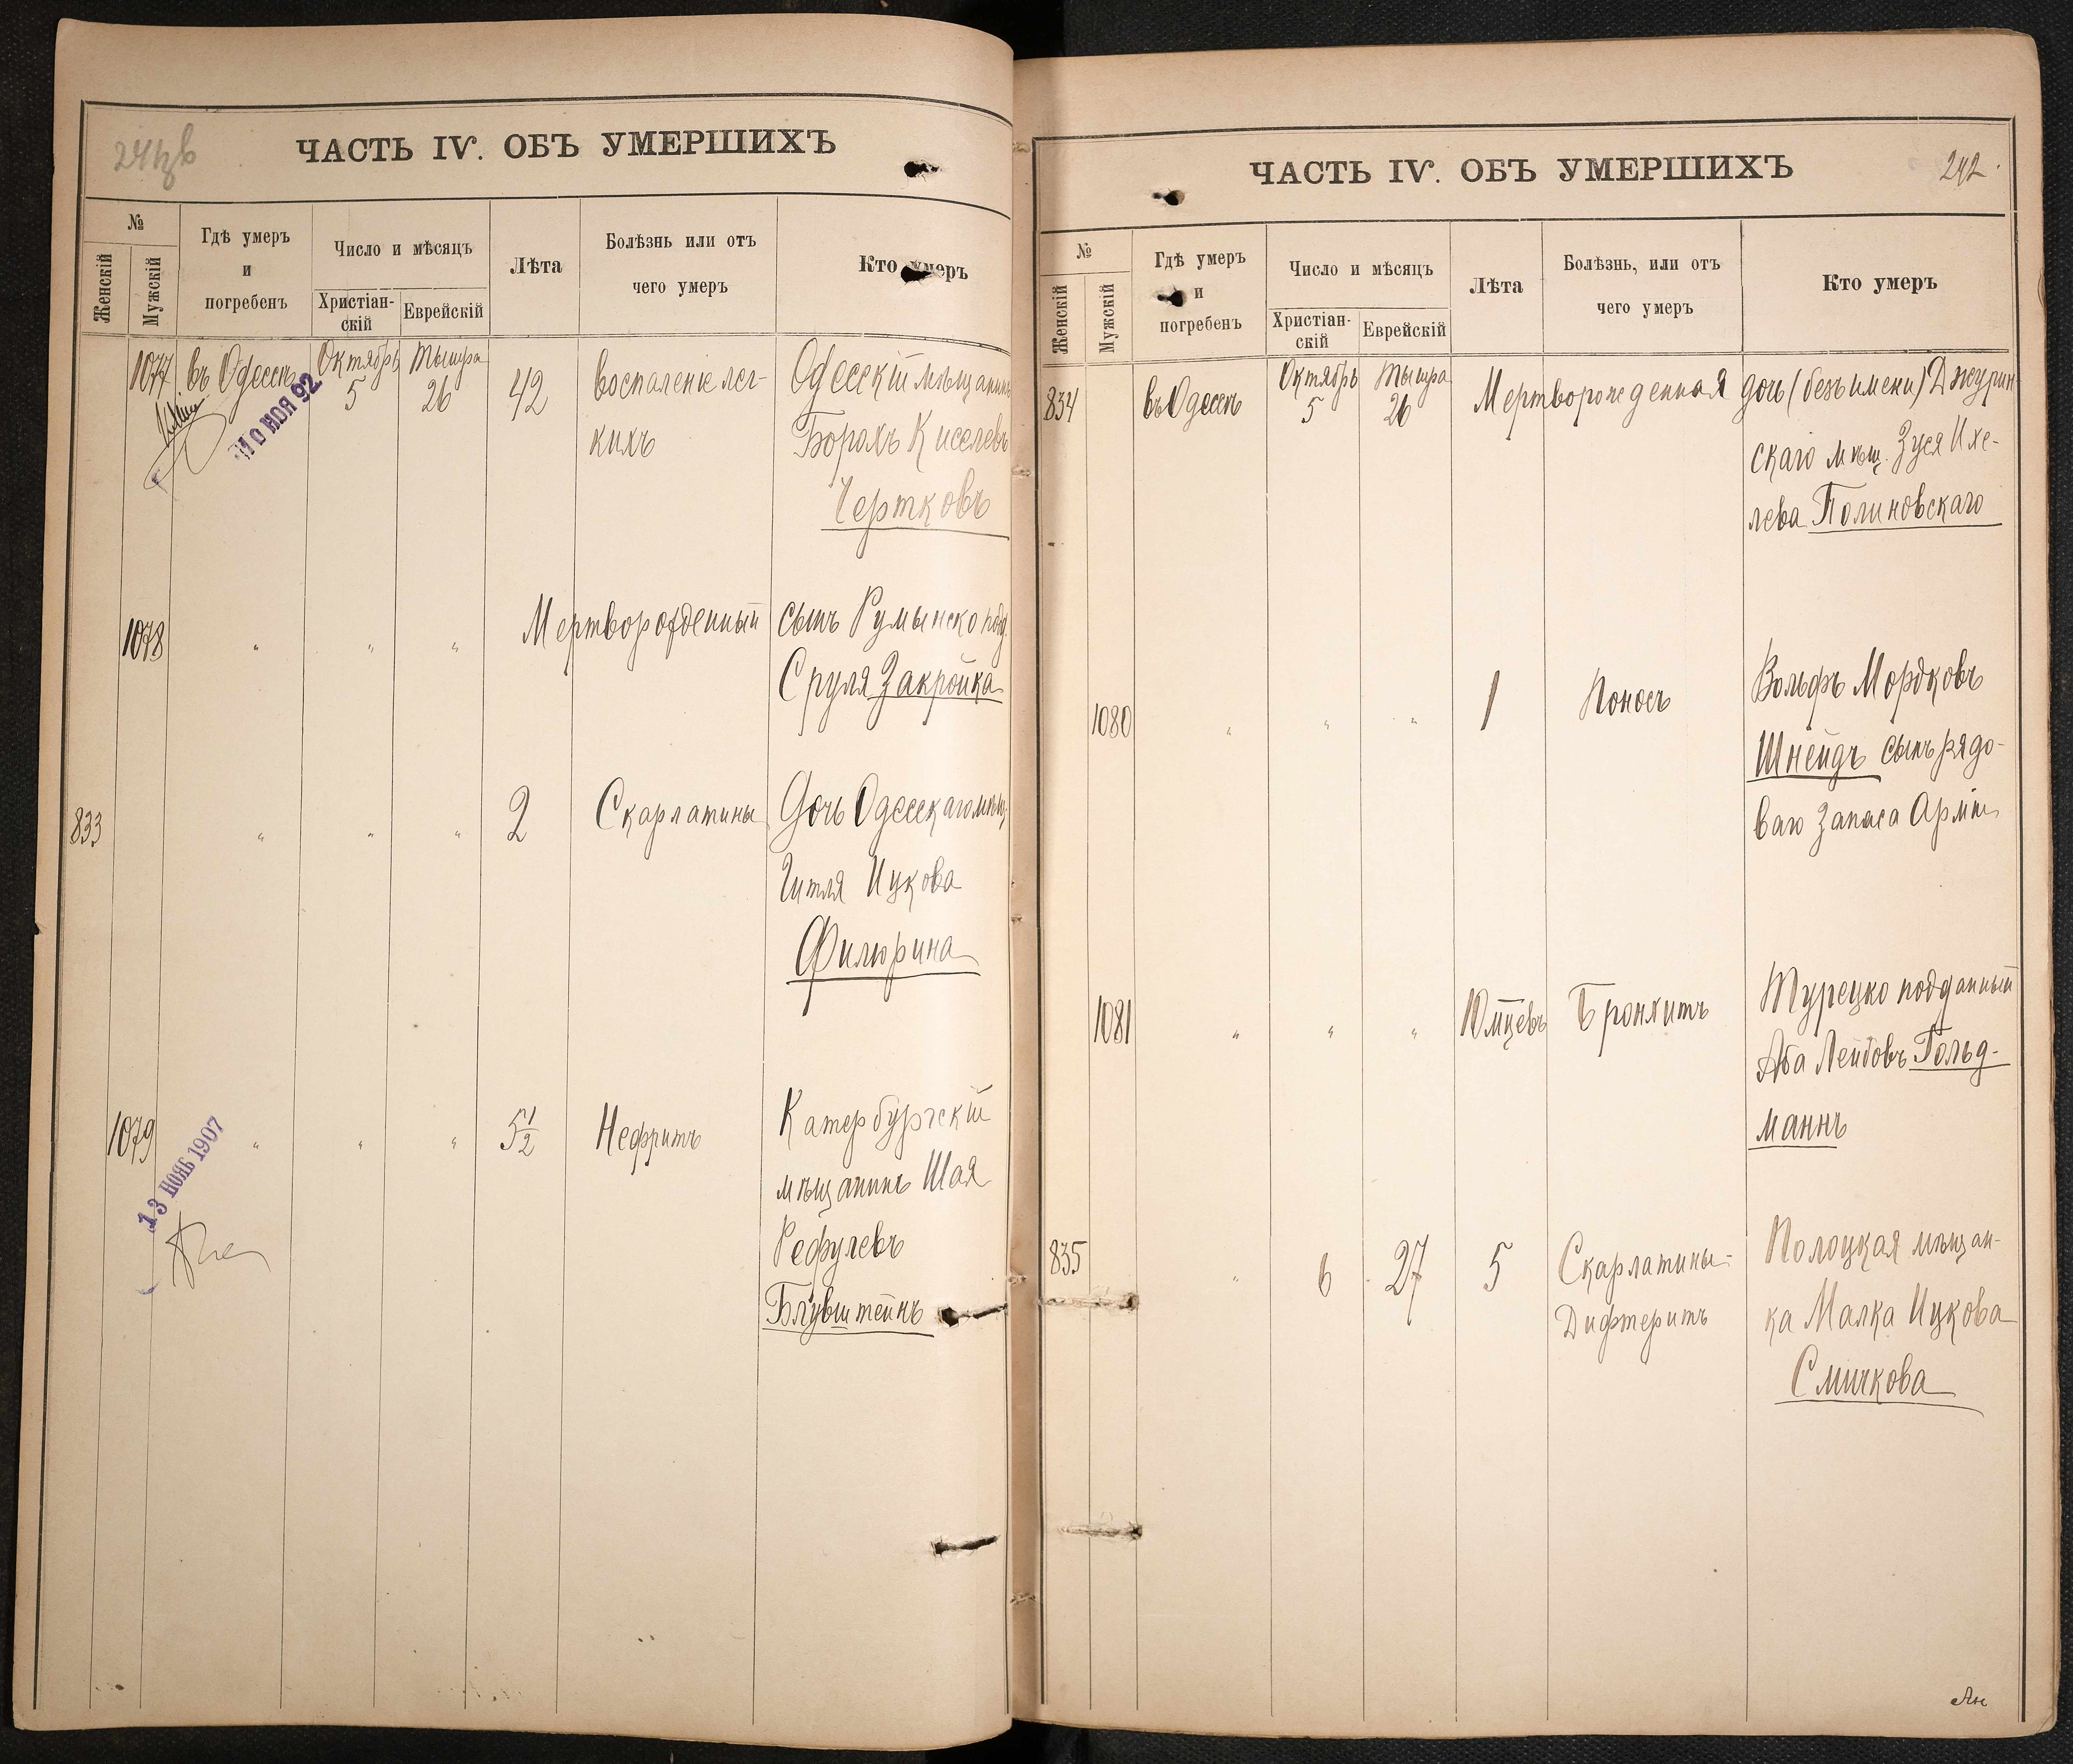 ЧАСТЬ IV. ОБЪ УМЕРШИХЪ
№
Женскій
Мужскій
Гдѣ умеръ
и
погребенъ
Число и мѣсяцъ
Христіан-
скій
Еврейскій
Лѣта
Болѣзнь или отъ
чего умеръ
Кто умеръ
1077 въ Одессѣ Октябрь Тышра 42 воспаленіе лег- Одесскій мѣщанинъ
5 26 кихъ Борохъ Киселевъ
Чертковъ
10 НОЯ 92
1078 " " " Мертворожденный сынъ Румынско подд.
Сруля Закройка
833 " " " 2 Скарлатины Дочь Одесскаго мѣщ.
Гитля Ицкова
Филюрина
1079 " " " 5 1/2 Нефритъ Катербургскій
мѣщанинъ Шая
Рефулевъ
Блувштейнъ
13 НОЯБ 1907
ЧАСТЬ IV. ОБЪ УМЕРШИХЪ
242.
№
Женскій
Мужскій
Гдѣ умеръ
и
погребенъ
Число и мѣсяцъ
Христіан-
скій
Еврейскій
Лѣта
Болѣзнь, или отъ
чего умеръ
Кто умеръ
834 въ Одессѣ Октябрь Тышра Мертворожденная дочь (безъ имени) Джурин-
5 26 скаго мѣщ. Зуся Ихе-
лева Полиновскаго
1080 " " " 1 Поносъ Вольфъ Мордковъ
Шнейдъ сынъ рядо-
ваго Запаса Арміи
1081 " " " 10 мцевъ Бронхитъ Турецко подданный
Аба Лейбовъ Гольд-
маннъ
835 " 6 27 5 Скарлатины- Полоцкая мѣщан-
Дифтеритъ ка Малка Ицкова
Смичкова